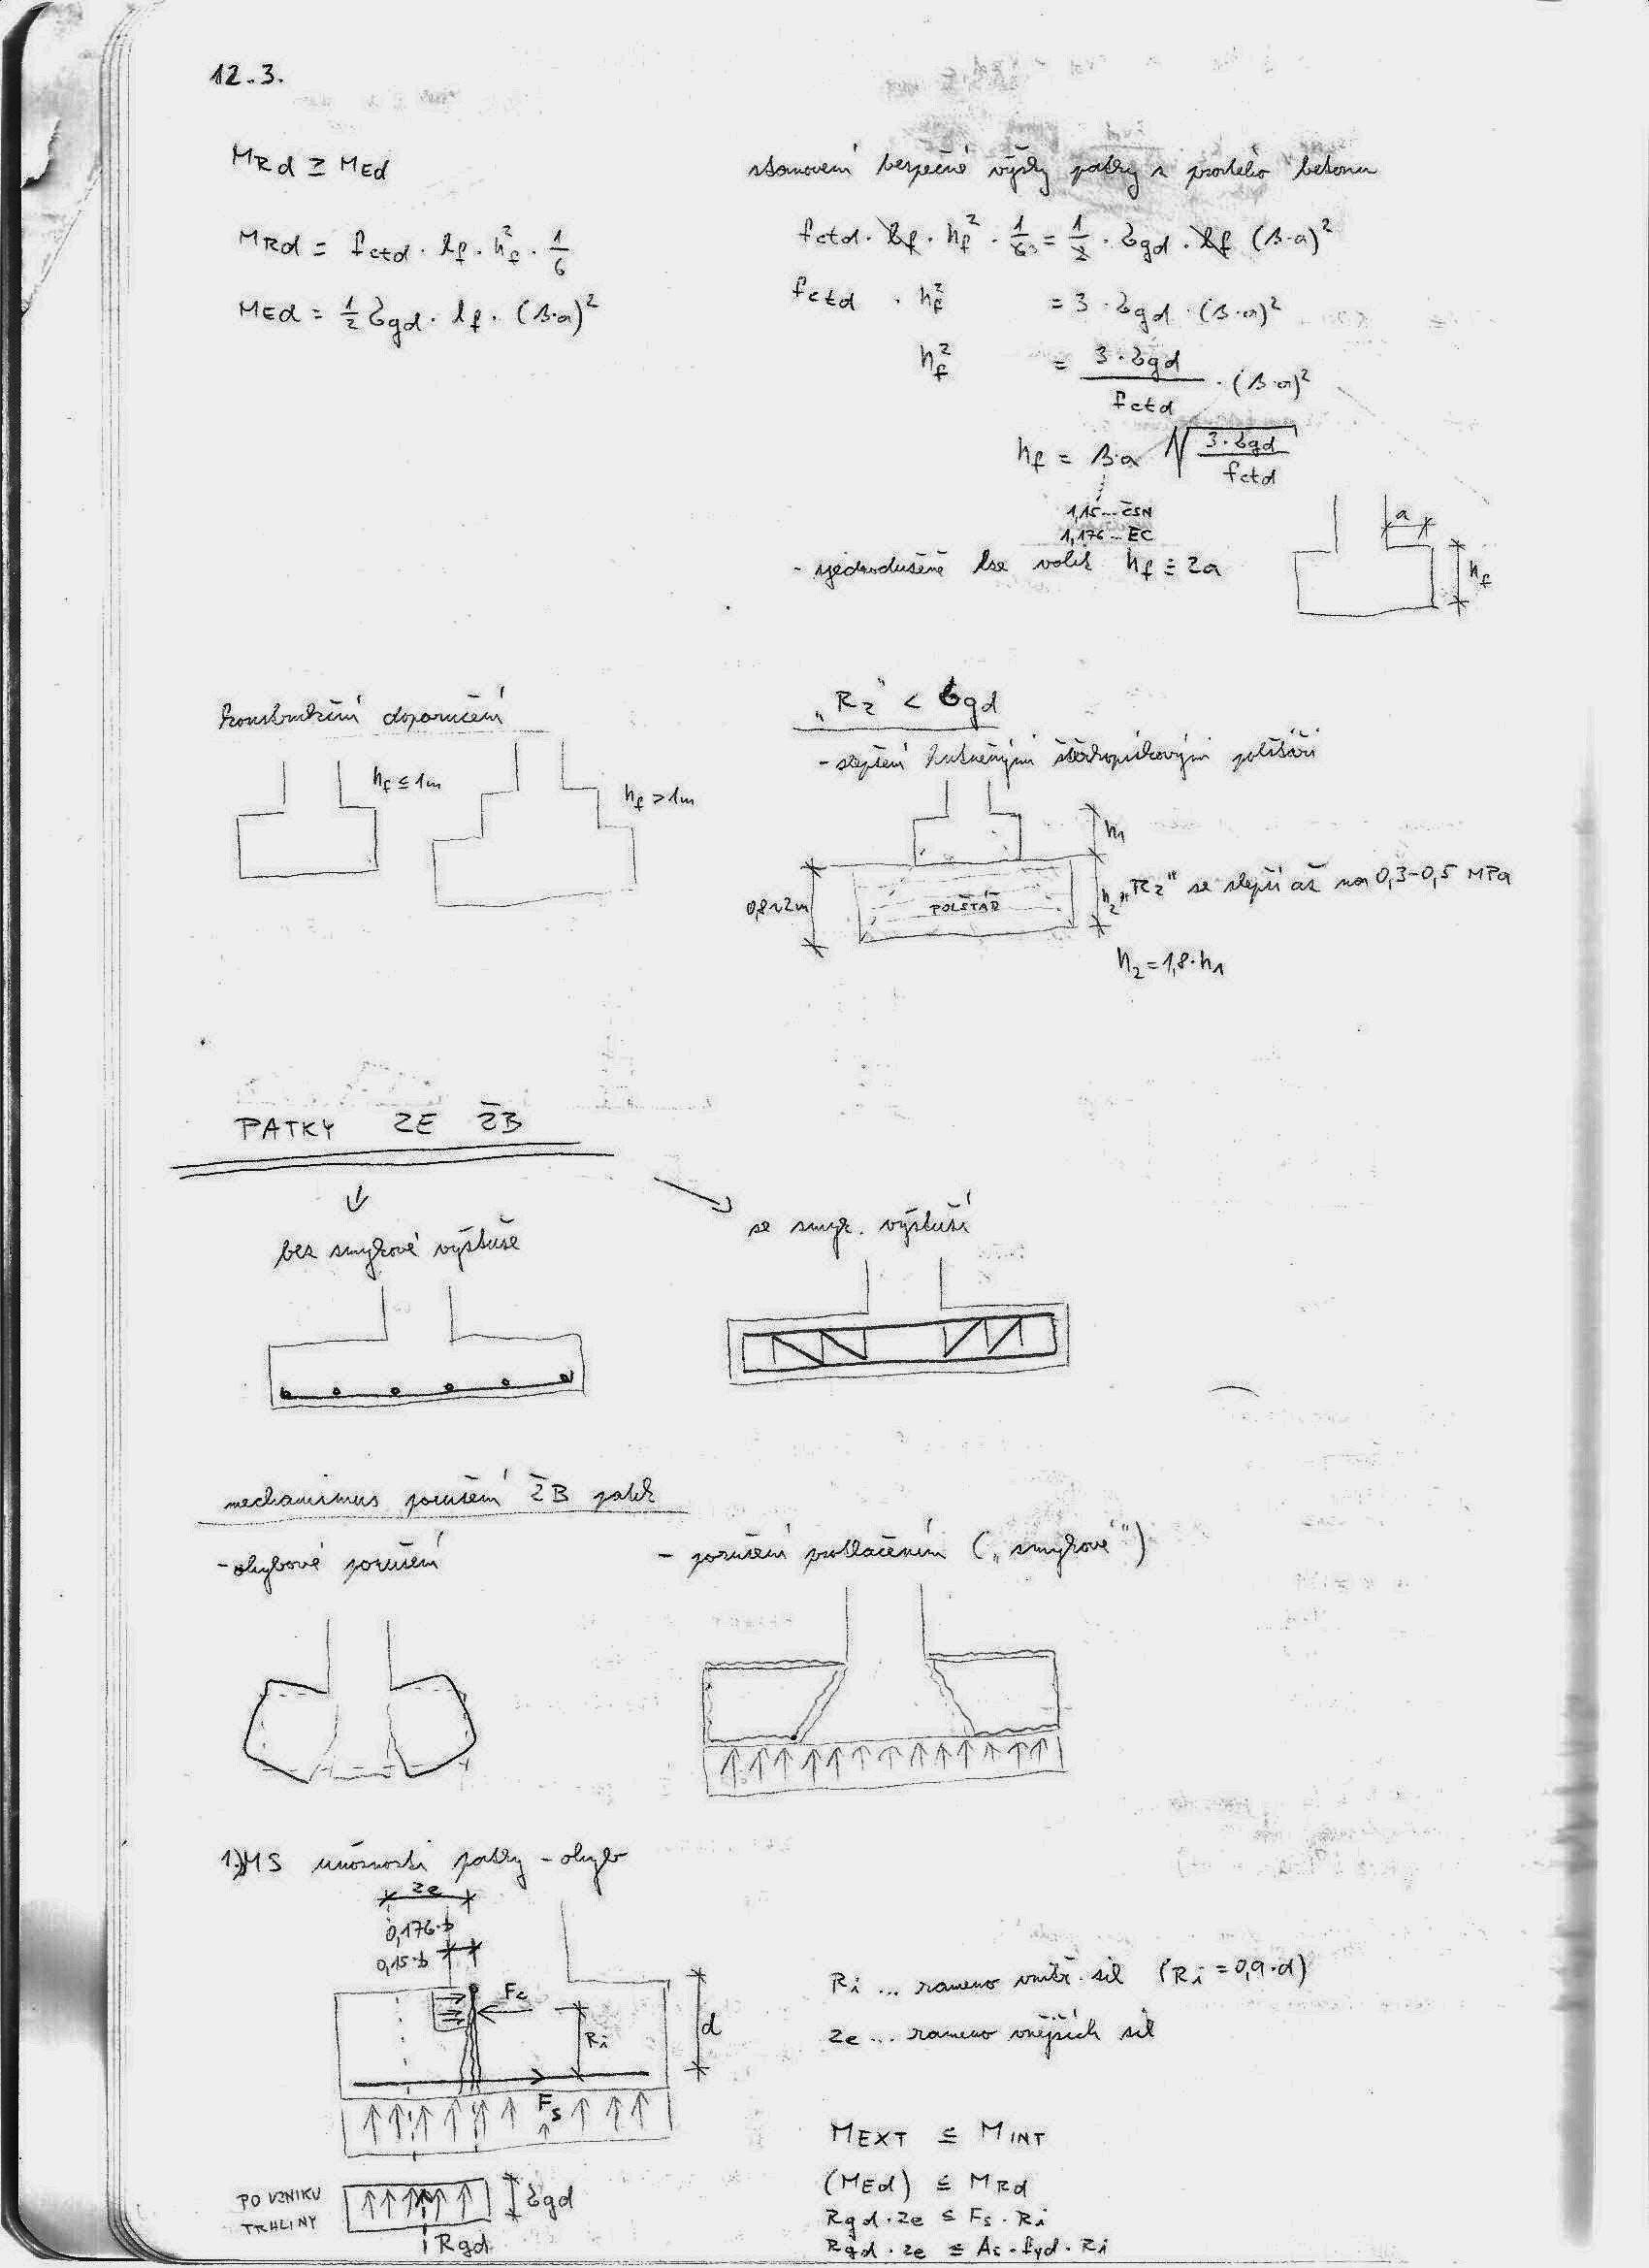 12.3.
MRd ≥ MEd
MRd = fctd · lf · hf² · 1/6
MEd = 1/2 σgd · lf · (β·a)²
stanovení bezpečné výšky patky z prostého betonu
fctd · lf · hf² · 1/6 3 = 1/2 · σgd · lf (β·a)²
fctd · hf² = 3 · σgd · (β·a)²
hf² = 3·σgd / fctd · (β·a)²
hf = β·a √(3·σgd / fctd)
1,15... ČSN
1,176... EC
a
- zjednodušeně lze volit hf ≐ 2a
hf
konstrukční doporučení
hf ≤ 1m
hf > 1m
„Rz" < σgd
- zlepšení hutněnými štěrkopískovými polštáři
h1
0,8÷2m
POLŠTÁŘ
h2
„Rz" se zlepší až na 0,3-0,5 MPa
h2 = 1,8·h1
PATKY ZE ŽB
bez smykové výztuže
se smyk. výztuží
mechanismus porušení ŽB patek
- ohybové porušení
- porušení protlačením („smykové")
1)MS únosnosti patky - ohyb
ze
0,176·b
0,15·b
Fc
Ri
d
Fs
Ri ... rameno vnitř. sil (Ri = 0,9·d)
ze ... rameno vnějších sil
MEXT ≤ MINT
(MEd) ≤ MRd
Rgd · ze ≤ Fs · Ri
Rgd · ze ≤ As · fyd · Ri
PO VZNIKU
TRHLINY
σgd
Rgd